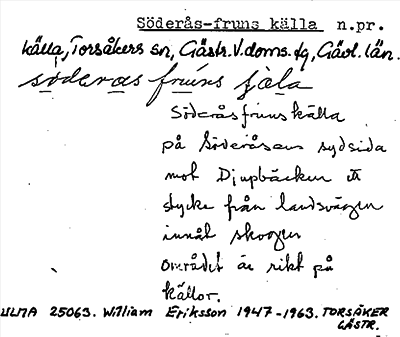 Söderås-fruns källa n.pr.
källa, Torsåkers sn, Gästr. V. doms. fq, Gävl. län.
söderas fruns jäla
Söderåsfruns källa
på Söderåsens sydsida
mot Djupbäcken ett
stycke från landsvägen
innåt skogen
området är rikt på
källor.
ULMA 25063. William Eriksson 1947-1963. TORSÅKER
GÄSTR.